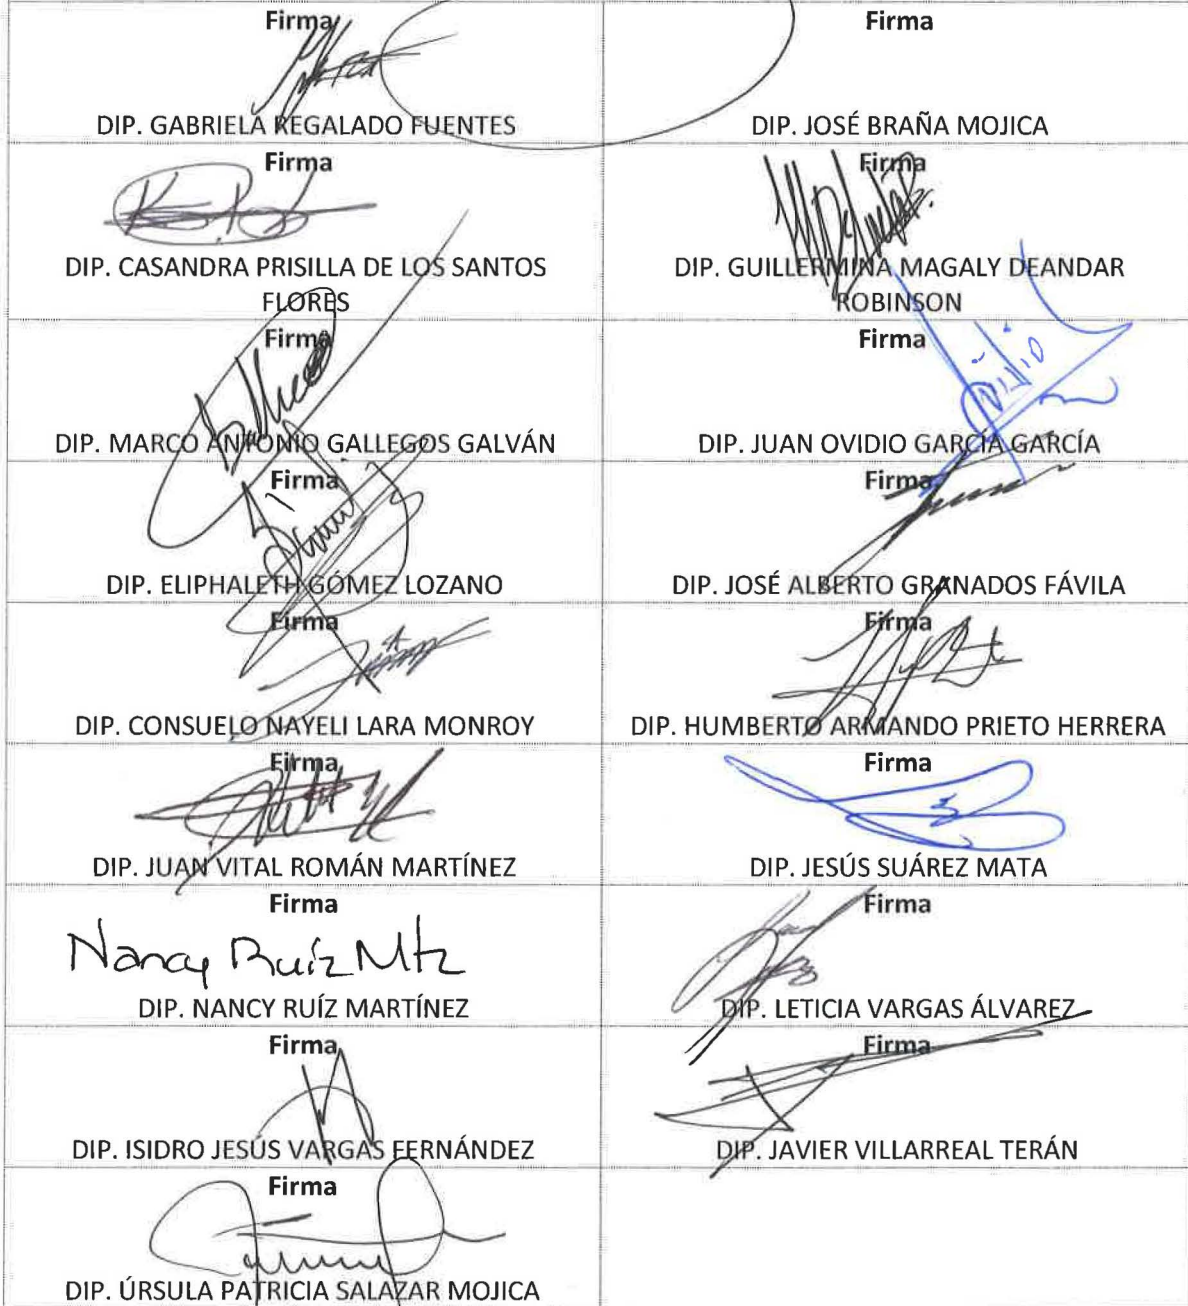 Firma
DIP. GABRIELA REGALADO FUENTES
Firma
DIP. JOSÉ BRAÑA MOJICA
Firma
DIP. CASANDRA PRISILLA DE LOS SANTOS
FLORES
Firma
DIP. GUILLERMINA MAGALY DEANDAR
ROBINSON
Firma
DIP. MARCO ANTONIO GALLEGOS GALVÁN
Firma
Ovidio
DIP. JUAN OVIDIO GARCÍA GARCÍA
Firma
DIP. ELIPHALETH GÓMEZ LOZANO
Firma
DIP. JOSÉ ALBERTO GRANADOS FÁVILA
Firma
DIP. CONSUELO NAYELI LARA MONROY
Firma
DIP. HUMBERTO ARMANDO PRIETO HERRERA
Firma
DIP. JUAN VITAL ROMÁN MARTÍNEZ
Firma
DIP. JESÚS SUÁREZ MATA
Firma
Nancy Ruíz Mtz
DIP. NANCY RUÍZ MARTÍNEZ
Firma
DIP. LETICIA VARGAS ÁLVAREZ
Firma
DIP. ISIDRO JESÚS VARGAS FERNÁNDEZ
Firma
DIP. JAVIER VILLARREAL TERÁN
Firma
DIP. ÚRSULA PATRICIA SALAZAR MOJICA